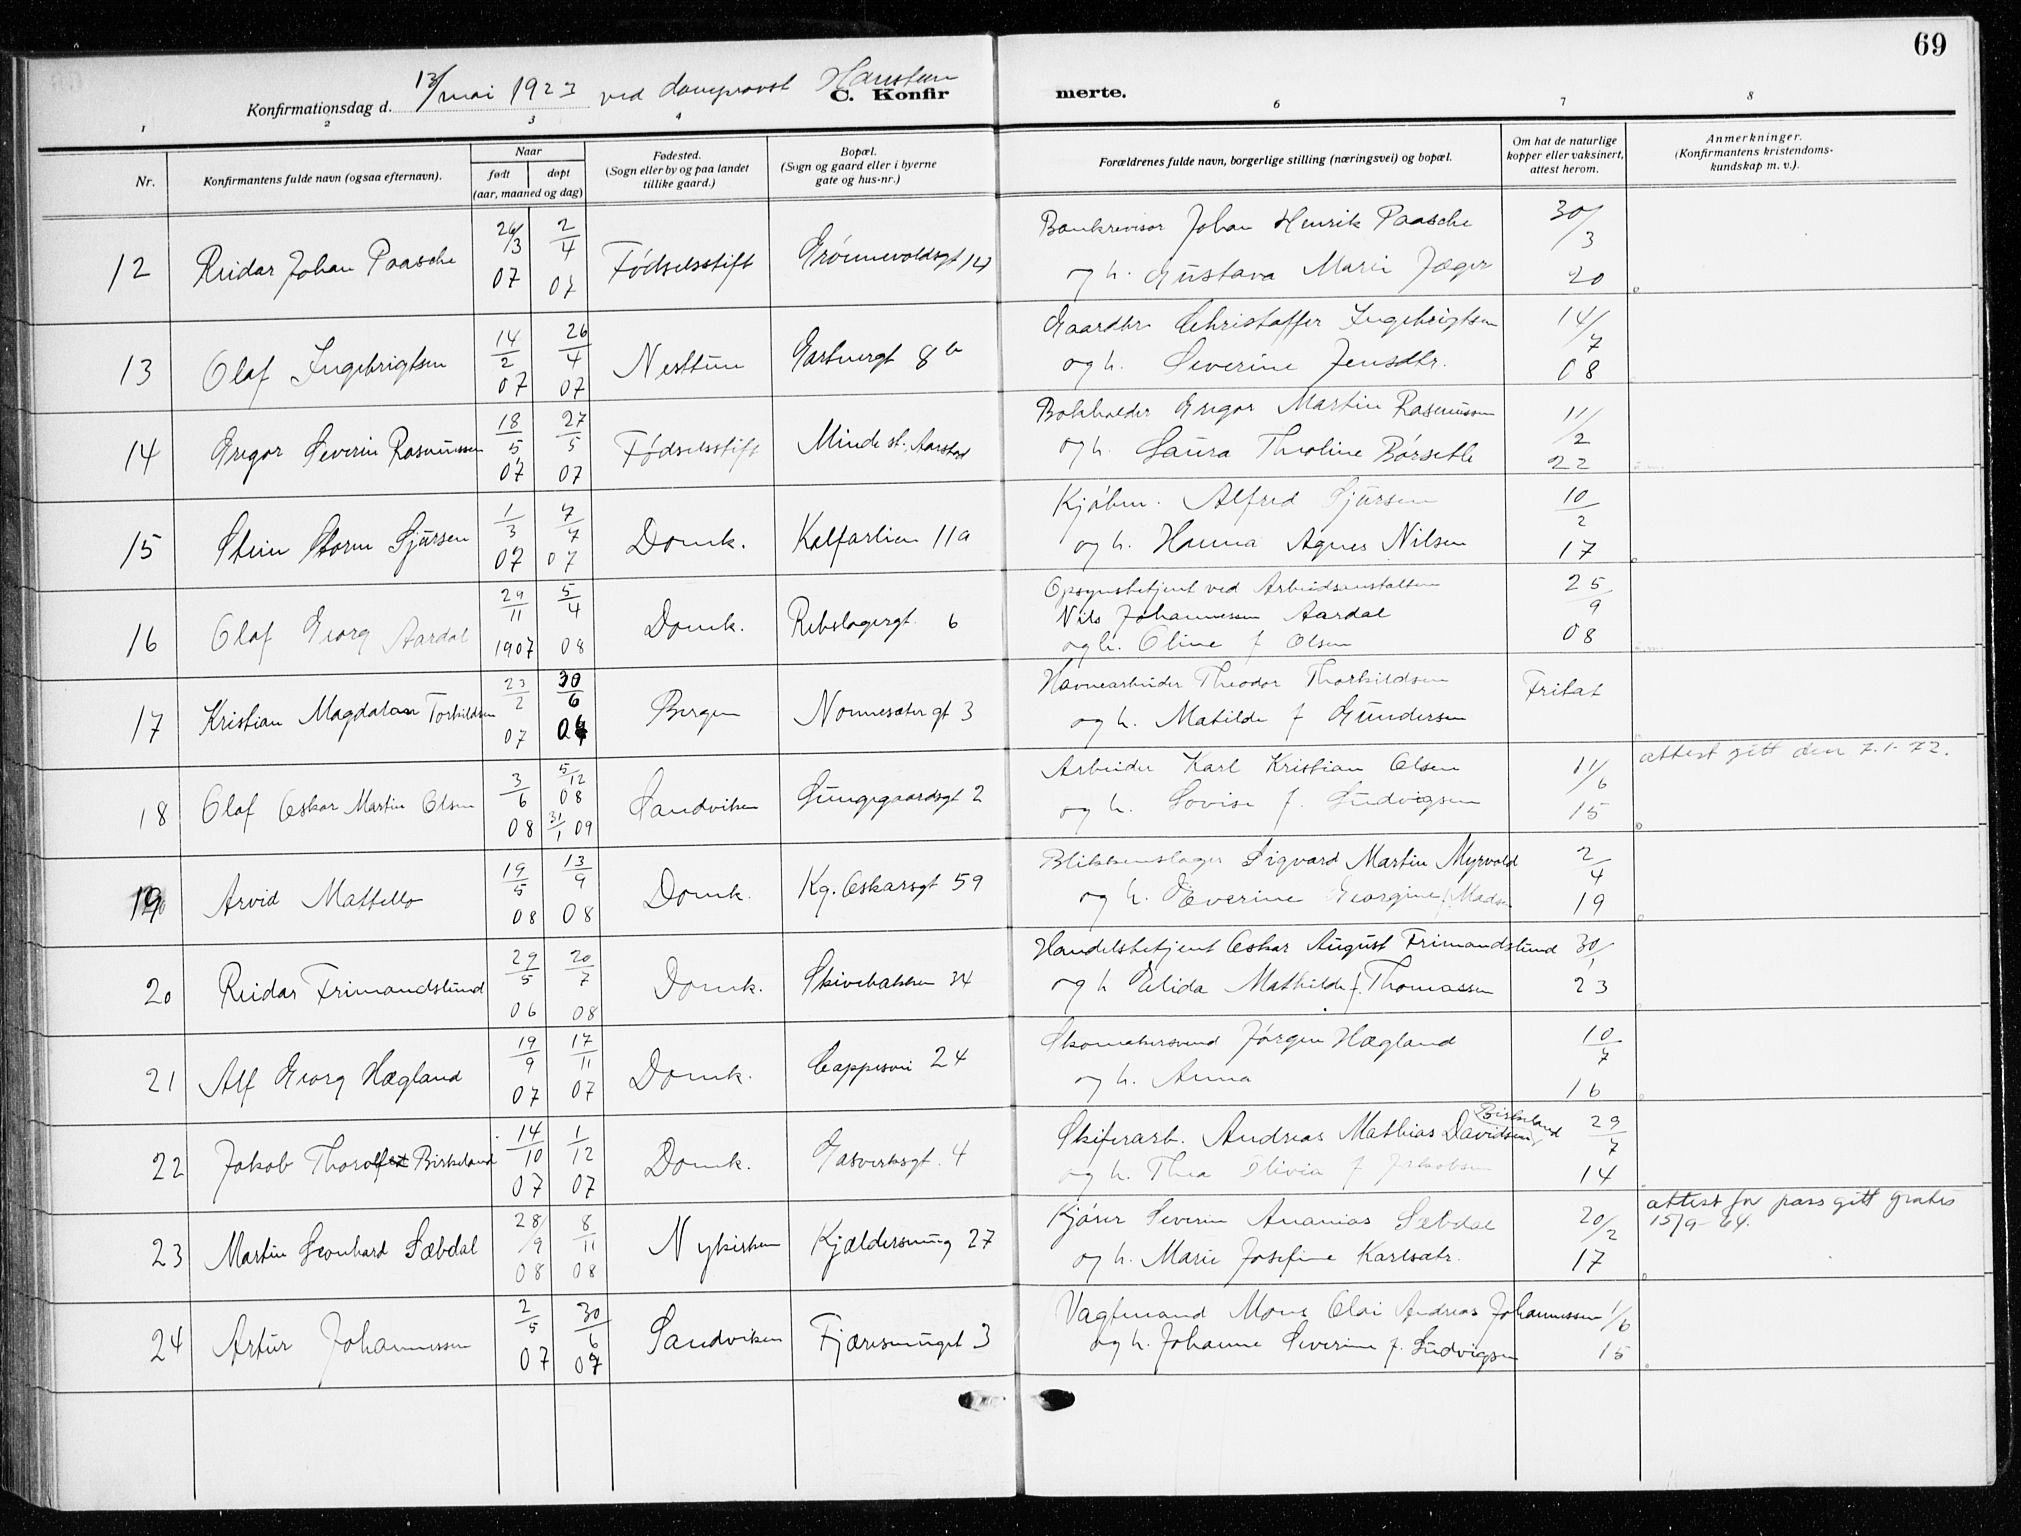 69
Konfirmationsdag d. 13/mai 1923 ved domprovst Hansteen
C. Konfirmerte.
1 2 3 4 6 7 8
Nr. Konfirmantens fulde navn (ogsaa efternavn). Naar født døpt (aar, maaned og dag) Fødested. (Sogn eller by og paa landet tillike gaard.) Bopæl. (Sogn og gaard eller i byerne gate og hus-nr.) Forældrenes fulde navn, borgerlige stilling (næringsvei) og bopæl. Om hat de naturlige kopper eller vaksinert, attest herom. Anmerkninger. (Konfirmantens kristendomskundskap m. v.).
12 Reidar Johan Paasche 26/3 07 2/4 07 Fødselsstift Grønnevoldsgt 14 Bankrevisor Johan Henrik Paasche 30/3 20
og h. Gustava Marie Jæger
13 Olaf Ingebrigtsen 14/2 07 26/4 07 Nesttun Gartnergt 8b Gaardbr. Christoffer Ingebrigtsen 14/7 08
og h. Severine Jensdtr.
14 Gregor Severin Rasmussen 18/5 07 27/5 07 Fødselsstift Minde st. Aarstad Bokholder Gregor Martin Rasmussen 11/2 22
og h. Laura Theoline Børseth
15 Stein Storm Sjursen 1/3 07 7/7 07 Domk. Kalfarlien 11a Kjøbm. Alfred Sjursen 10/2 17
og h. Hanna Agnes Nilsen
16 Olaf Georg Aardal 29/11 1907 5/4 08 Domk. Rebslagergt. 6 Opsynsbetjent ved Arbeidsanstalten 25/9 08
Nils Johannessen Aardal
og h. Oline f Olsen
17 Kristian Magdalon Torkildsen 23/2 07 30/6 Bergen Nonnesæter gt 3 Havnearbeider Theodor Thorkildsen Fritat
og h. Matilde f Gundersen
18 Olaf Oskar Martin Olsen 3/6 08 5/12 08 31/1 09 Sandviken Lungegaardsgt 2 Arbeider Karl Kristian Olsen 11/6 15 attest gitt den 7.1.72.
og h. Lovise f. Ludvigsen
19 Arvid Mattello 19/5 08 13/9 08 Domk. Kg. Oskarsgt 59 Blikkenslager Sigvard Martin Myrvold 2/4 19
og h. Severine Georgine f. Madsen
20 Reidar Frimandslund 29/5 06 20/7 08 Domk. Skivebakken 34 Handelsbetjent Oskar August Frimandslund 30/1 23
og h Elida Mathilde f. Thomassen
21 Alf Georg Hægland 19/9 07 17/11 07 Domk. Cappesvei 24 Skomakersvend Jørgen Hægland 10/7 16
og h. Anna
22 Jakob Thorolf Birkeland 14/10 07 1/12 07 Domk. Gasverksgt. 4 Skiferarb. Andreas Mathias Davidsen Birkeland 29/7 14
og h. Thea Olivia f Jakobsen
23 Martin Leonhard Sæbdal 28/9 08 8/11 08 Nykirken Kjældersmug 27 Kjører Severin Ananias Sebdal 20/2 17 attest for pass gitt gratis 15/9-64.
og h. Marie Josefine Karlsdtr.
24 Artur Johannessen 2/5 07 30/6 07 Sandviken Fjæresmuget 3 Vagtmand Mons Olai Andreas Johannessen 1/6 15
og h. Johanne Severine f. Ludvigsen